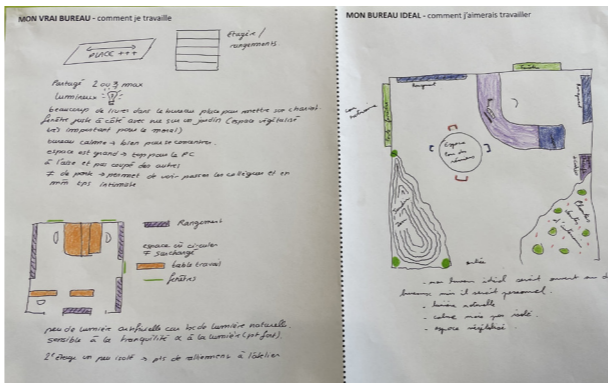 MON VRAI BUREAU - comment je travaille
PLACE +++
Etagère /
rangements
Partagé 2 ou 3 max
lumineux
beaucoup de livres dans le bureau place pour mettre sur
fenêtre juste à côté avec vue sur un jardin (espace végétalisé
très important pour le moral)
bureau calme → bien pour se concentrer.
espace est grand → top pour le PC
à l'aise et pas coupé des autres
≠ de porte → permet de voir passer les collègues et en
mm tps intimiste
Rangement
espace où circuler
≠ surchargé
table travail
fenêtres
peu de lumière artificielle car bc de lumière naturelle.
sensible à la tranquilité & à la lumière (pt fort).
2e étage un peu isolé → pts de ralliement à l'atelier
MON BUREAU IDEAL - comment j'aimerais travailler
fenêtre
Rangement
Espace
pour se
réunir
Plantes
entrée
- mon bureau idéal serait ouvert
bureaux mais il serait personnel.
- lumière naturelle
- calme mais pas isolé
- espace végétalisé